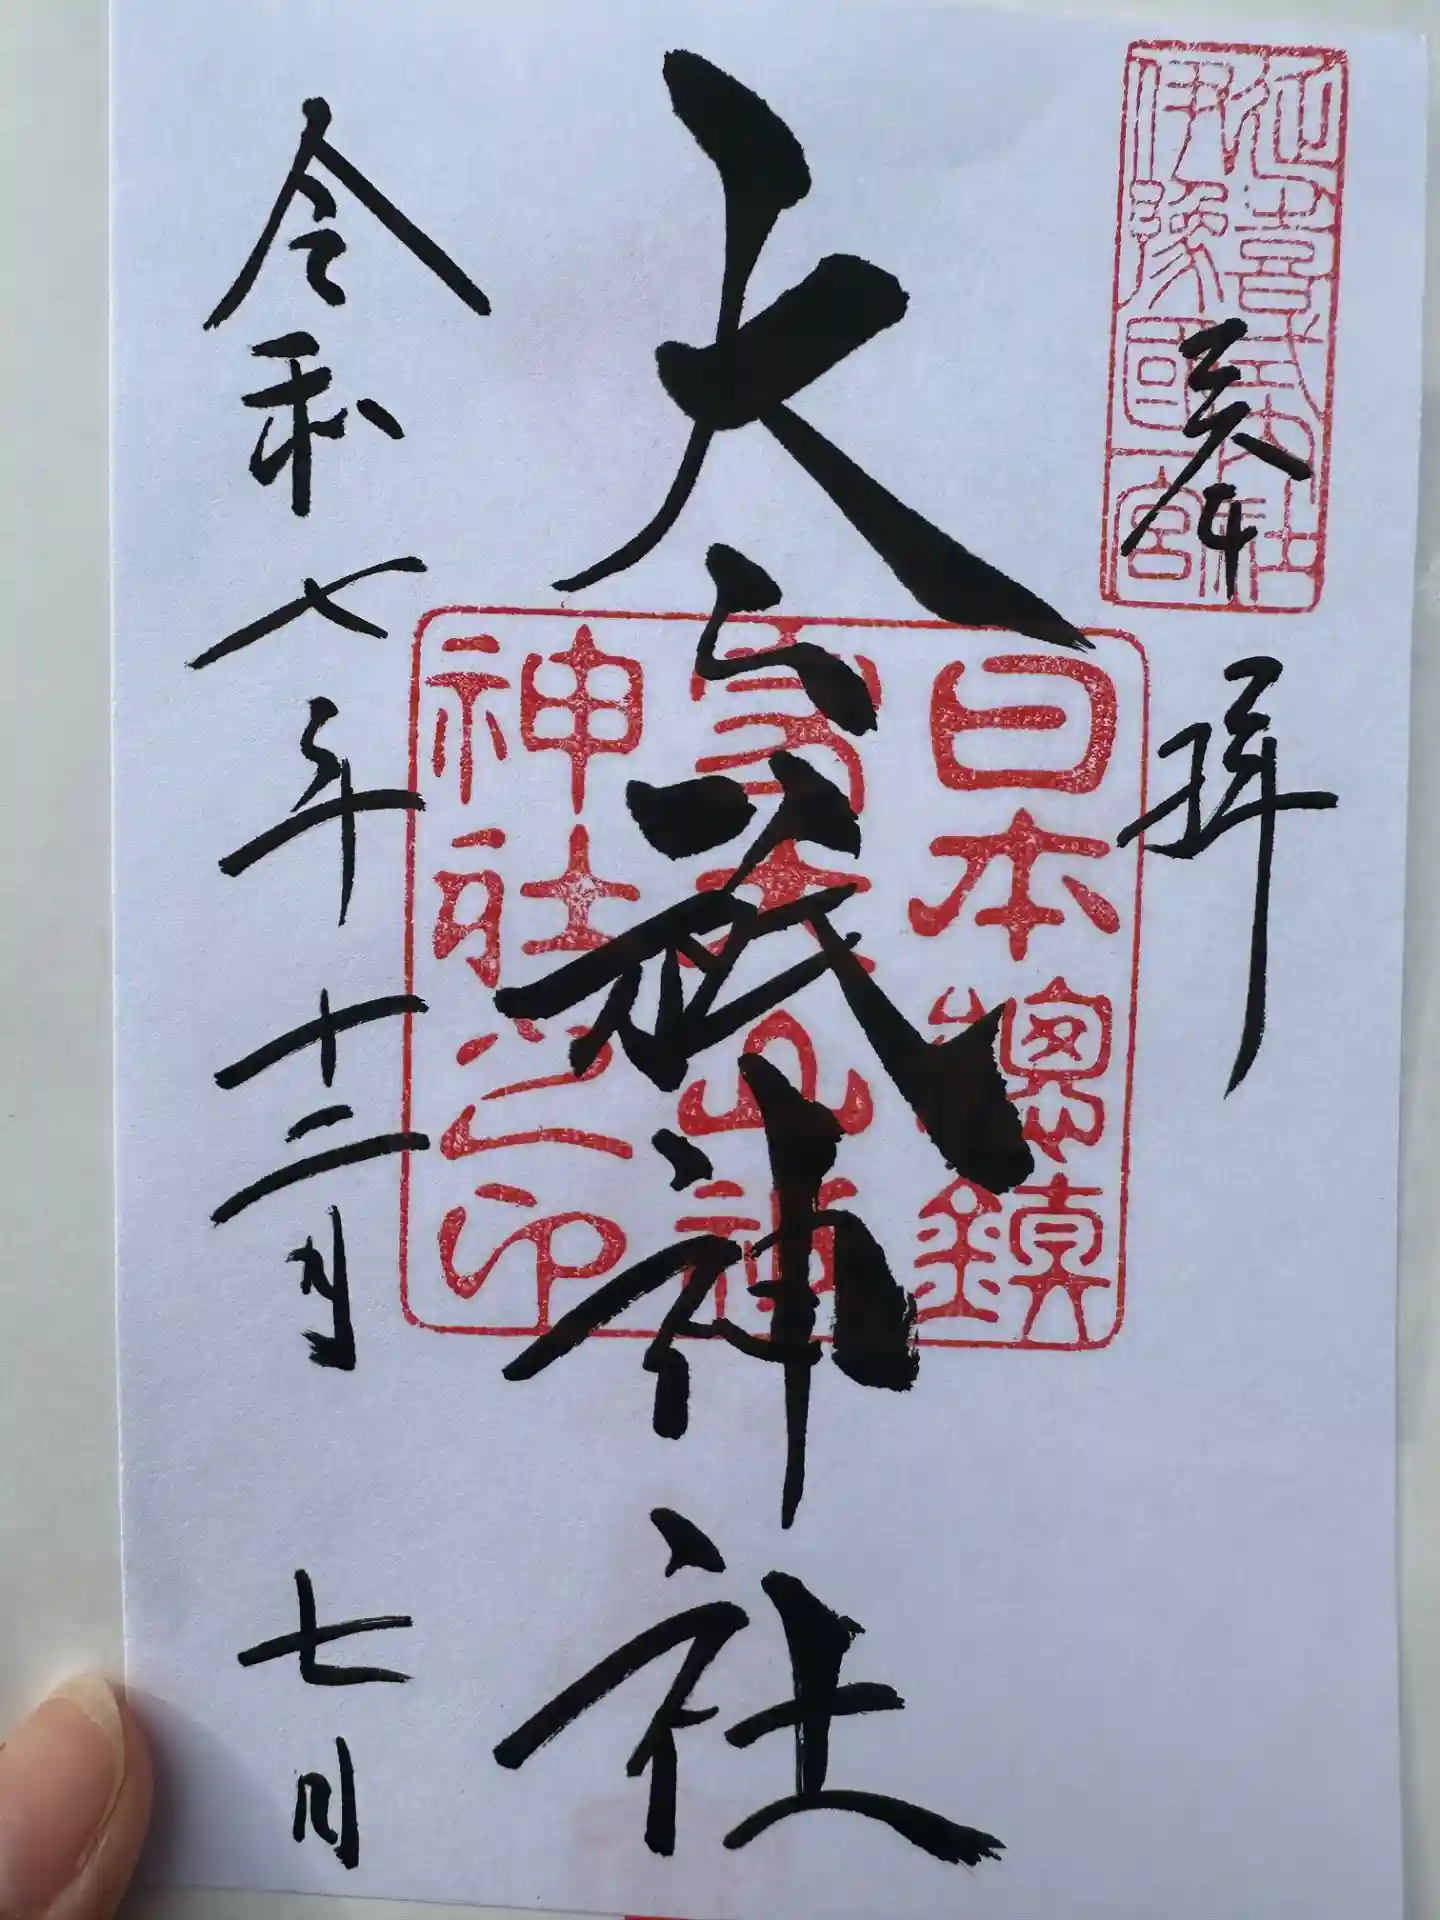 延喜式内社
伊豫國一宮
奉拝
日本總鎮
守大山祇
神社之印
大山祇神社
令和七年十二月七日